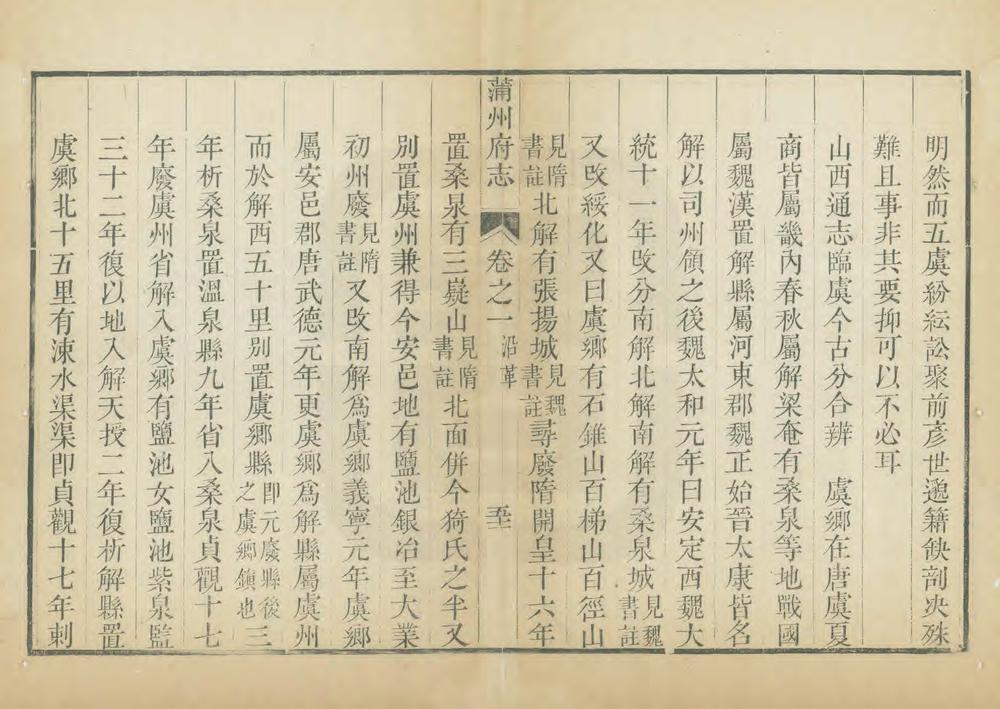 明然而五虞紛紜訟聚前彥世遞籍缺剖決殊
難且事非其要抑可以不必耳
山西通志臨虞今古分合辨　虞鄉在唐虞夏
商皆屬畿內春秋屬解梁奄有桑泉等地戰國
屬魏漢置解縣屬河東郡魏正始晉太康皆名
解以司州領之後魏太和元年曰安定西魏大
統十一年改分南解北解南解有桑泉城見魏書註
又改綏化又曰虞鄉有石錐山百梯山百徑山
見隋書註北解有張揚城見魏書註尋廢隋開皇十六年
蒲州府志　卷之一　沿革　五十二
置桑泉有三嶷山見隋書註北面併今猗氏之半又
別置虞州兼得今安邑地有鹽池銀冶至大業
初州廢見隋書註又改南解為虞鄉義寧元年虞鄉
屬安邑郡唐武德元年更虞鄉為解縣屬虞州
而於解西五十里別置虞鄉縣即元廢縣後之虞鄉鎮也三
年析桑泉置溫泉縣九年省入桑泉貞觀十七
年廢虞州省解入虞鄉有鹽池女鹽池紫泉監
三十二年復以地入解天授二年復析解縣置
虞鄉北十五里有涑水渠渠即貞觀十七年刺